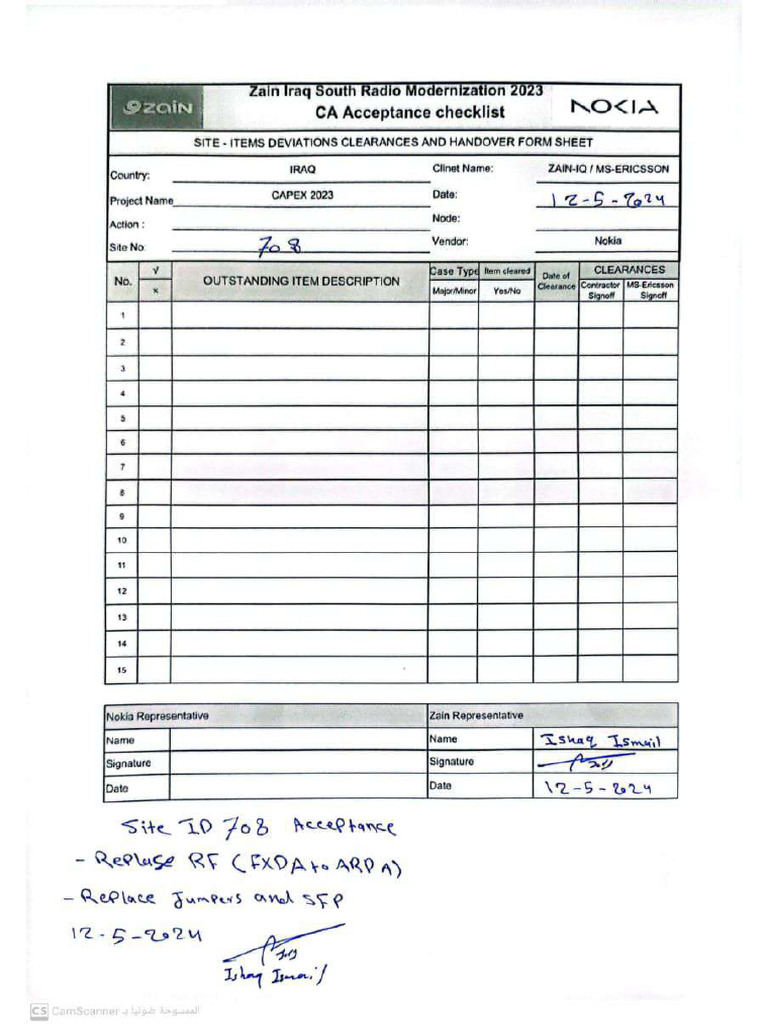 zain
Zain Iraq South Radio Modernization 2023
CA Acceptance checklist
NOKIA
SITE - ITEMS DEVIATIONS CLEARANCES AND HANDOVER FORM SHEET
Country: IRAQ Clinet Name: ZAIN-IQ / MS-ERICSSON
Project Name CAPEX 2023 Date: 12-5-2024
Action : Node:
Site No 708 Vendor: Nokia
No. √ x OUTSTANDING ITEM DESCRIPTION Case Type Major/Minor Item cleared Yes/No Date of Clearance CLEARANCES Contractor Signoff MS-Ericsson Signoff
1
2
3
4
5
6
7
8
9
10
11
12
13
14
15
Nokia Representative Zain Representative
Name Name Ishaq Ismail
Signature Signature
Date Date 12-5-2024
Site ID 708 Acceptance
- Replase RF (FXDA to ARDA)
- Replace Jumpers and SFP
12-5-2024
Ishaq Ismail
CS CamScanner الممسوحة ضوئيا بـ